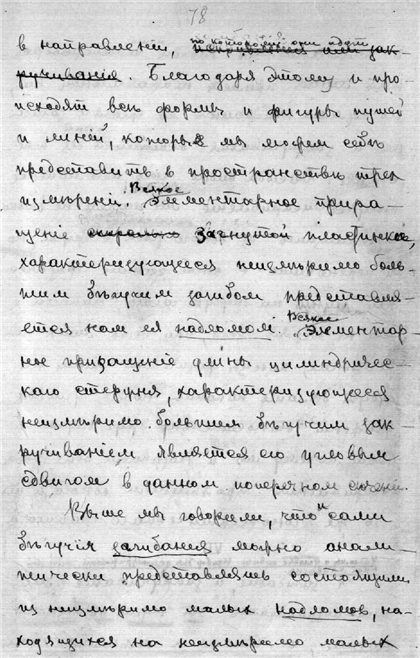 78
в направленіи, по которому они идут
ручивания. Благодаря этому и про-
исходят все формы и фигуры путей
и линій, которые мы можем себѣ
представить в пространствѣ трех
измѣреній. Всякое элементарное прира-
щеніе загнутой пластинки,
характеризующееся неизмѣримо боль-
шим загибом представля-
ется нам ея надломом. Всякое элементар-
ное приращеніе длины цилиндричес-
каго стержня, характеризующееся
неизмѣримо большим зак-
ручиваніем является его угловым
сдвигом в данном поперечном сѣчени.
Выше мы говорили, что и сами
загибания можно анали-
тически представлять состоящими
из неизмѣримо малых надломов, на-
ходящихся на неизмѣримо малых